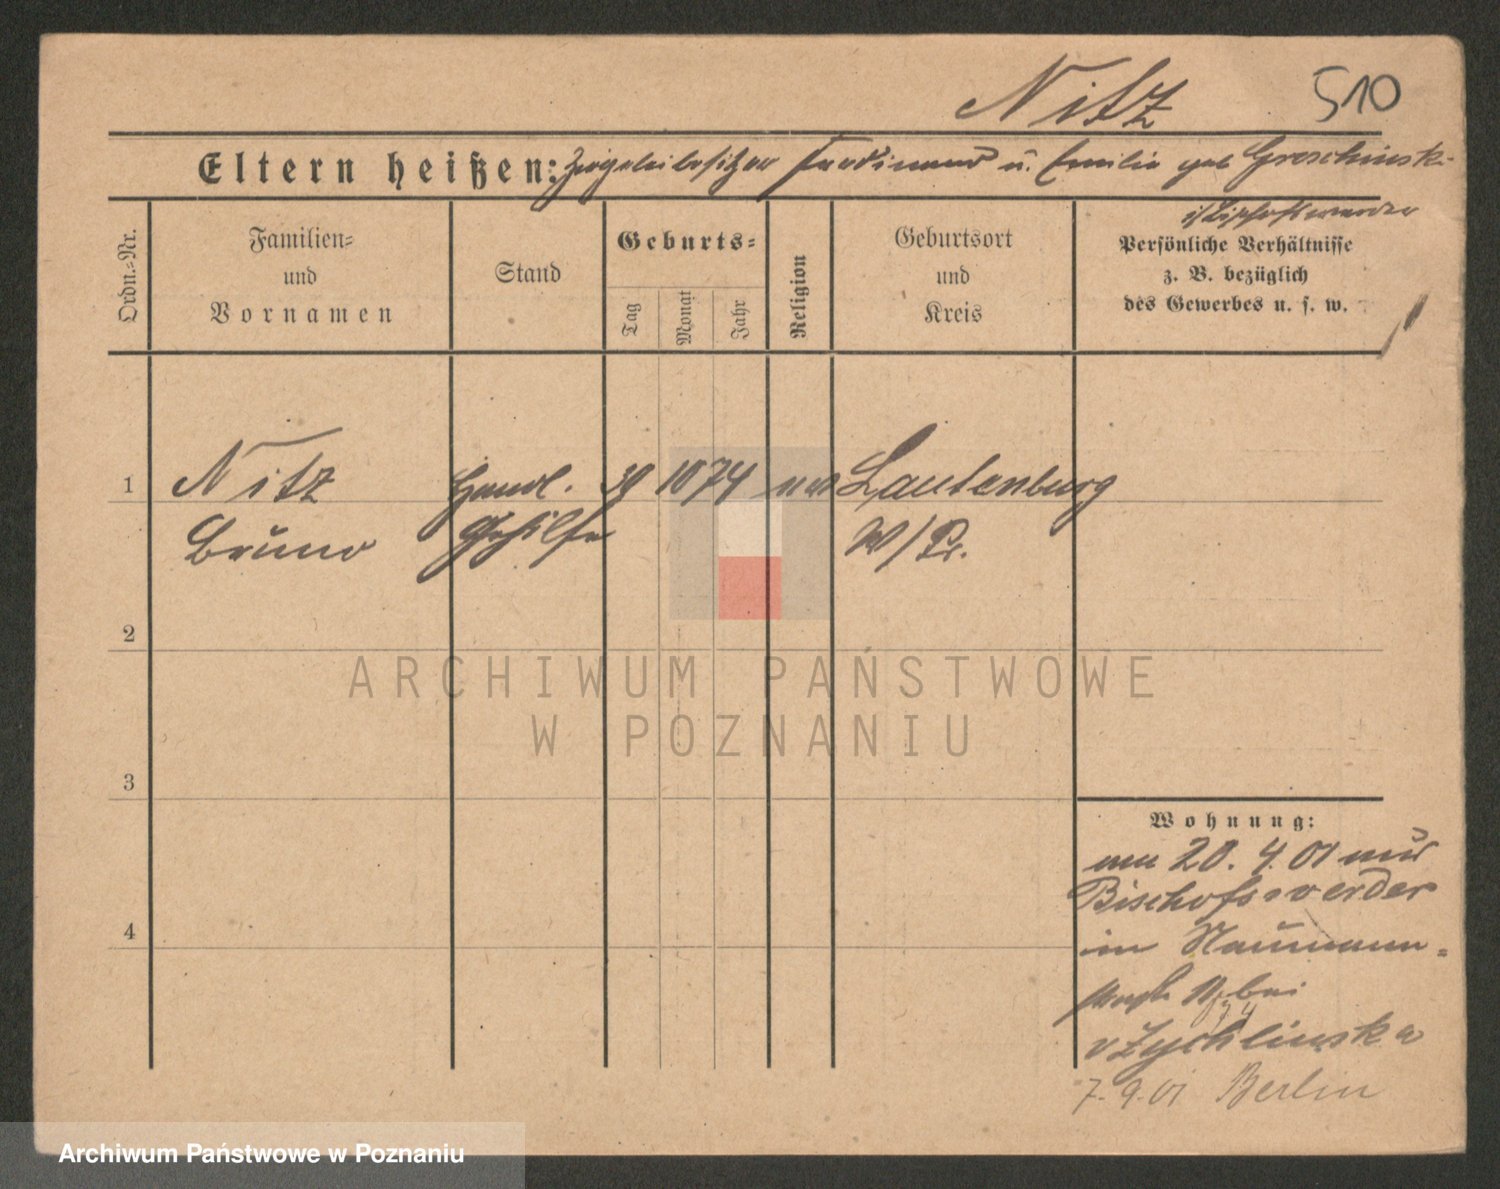 Nitz
510
Eltern heißen: Ziegeleibesitzer Ferdinand u. Emilie geb Groschinski
i/ Bischofswerder
Ordn.=Nr.
Familien=
und
Vornamen
Stand
Geburts=
Tag
Monat
Jahr
Religion
Geburtsort
und
Kreis
Persönliche Verhältnisse
z. B. bezüglich
des Gewerbes u. s. w.
1
Nitz
Handl.
10 74
Lautenburg
Bruno
Gehilfe
W/Pr.
2
ARCHIWUM PAŃSTWOWE
W POZNANIU
3
Wohnung:
20. 4. 01
Bischofswerder
Naumann=
bei
v Zychlinska
4
7. 9. 01 Berlin
Archiwum Państwowe w Poznaniu